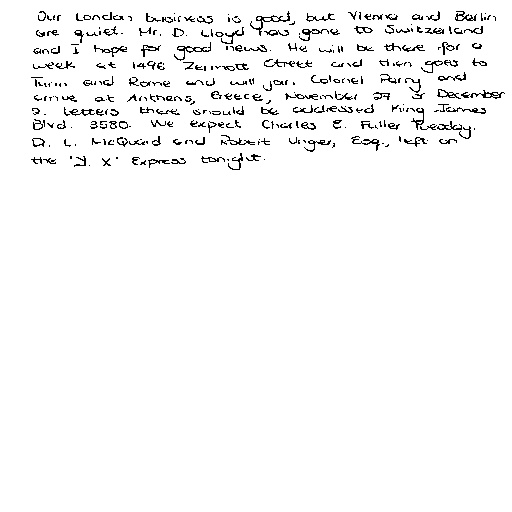 Our London business is good, but Vienna and Berlin
are quiet. Mr. D. Lloyd has gone to Switzerland
and I hope for good news. He will be there for a
week at 1496 Zermott Street and then goes to
Turin and Rome and will join Colonel Parry and
arrive at Anthens, Greece, November 27 or December
2. Letters there should be addressed King James
Blvd. 3580. We expect Charles E. Fuller Tuesday.
Dr. L. McQuaid and Robert Unger, Esq., left on
the "Y. X" Express tonight.